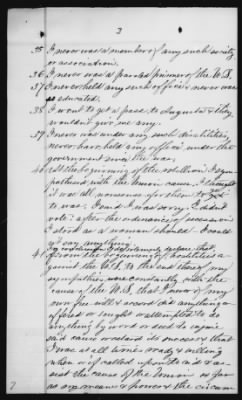 3
35 I never was a member of any such society
or association.
36 I never was a paroled prisoner of the U.S.
37 I never held any such office & never was
so educated.
38 I went to get a pass to Augusta & they
wouldn't give me any.
39 I never was under any such disabilities,
never have held any office under the
government since the war.
40 At the beginning of the rebellion I sym-
pathized with the Union cause. I thought
it was all women of a shame to go
to war. I said I was sorry. I didn't
vote: after the ordinance of secession
I stood as a woman should. I could
n't say anything.
I do solemnly declare that,
41 from the beginning of hostilities a-
gainst the U.S. to the end thereof my
sympathies were constantly with the
cause of the U.S. that I never of my
own free will & accord did anything
or failed or sought or attempted to do
anything by word or deed to injure
said cause or retard its success & that
I was at all times ready & willing
when called upon to aid & as-
sist the cause of the Union as far
as my means & power & the circum
7